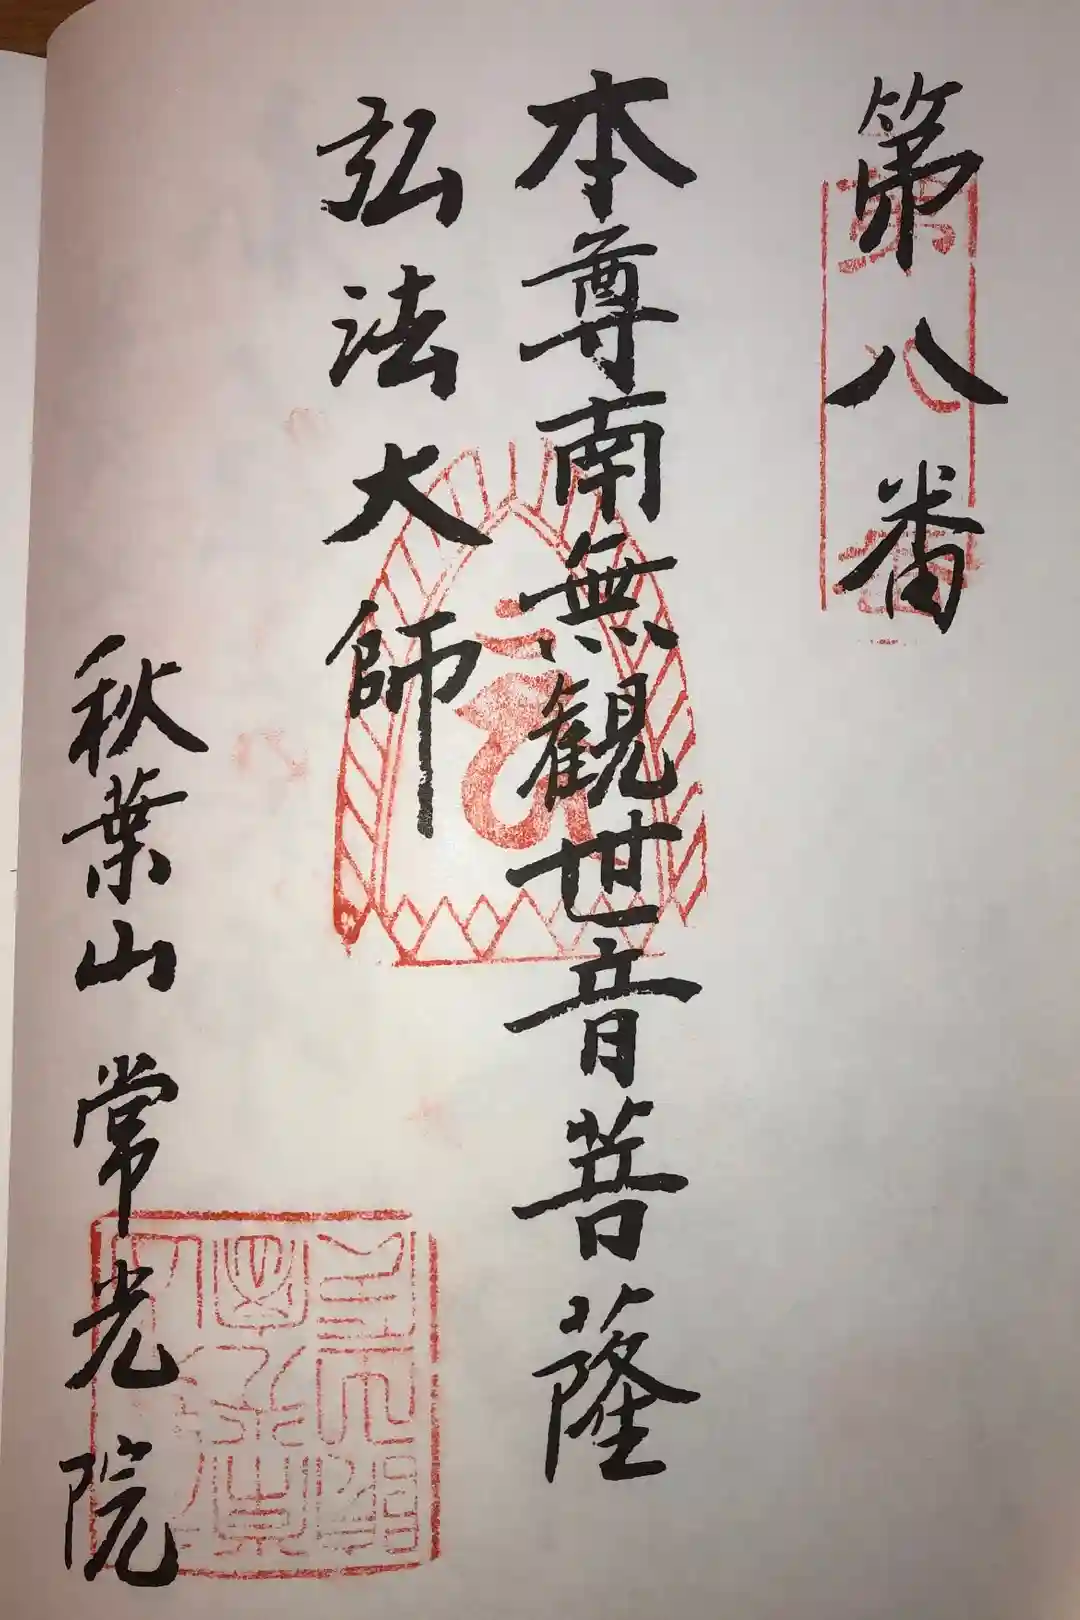 第八番
本尊南無観世音菩薩
弘法大師
秋葉山 常光院